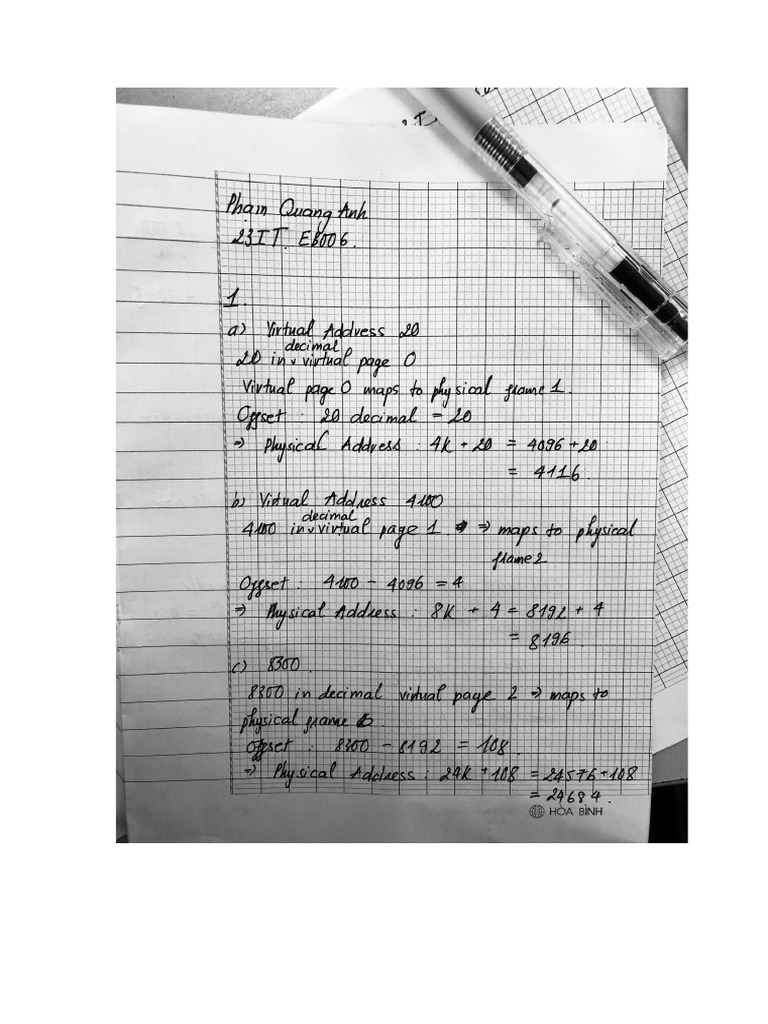 Phạm Quang Anh
23IT. EB006.
1.
a) Virtual Address 20
decimal
20 in virtual page 0
Virtual page 0 maps to physical frame 1.
Offset : 20 decimal = 20
=> Physical Address : 4K + 20 = 4096 + 20
= 4116
b) Virtual Address 4100
decimal
4100 in virtual page 1 => maps to physical
frame 2
Offset : 4100 - 4096 = 4
=> Physical Address : 8K + 4 = 8192 + 4
= 8196.
c) 8300.
8300 in decimal virtual page 2 => maps to
physical frame 6.
Offset : 8300 - 8192 = 108.
=> Physical Address : 24K + 108 = 24576 + 108
= 24684.
HÒA BÌNH